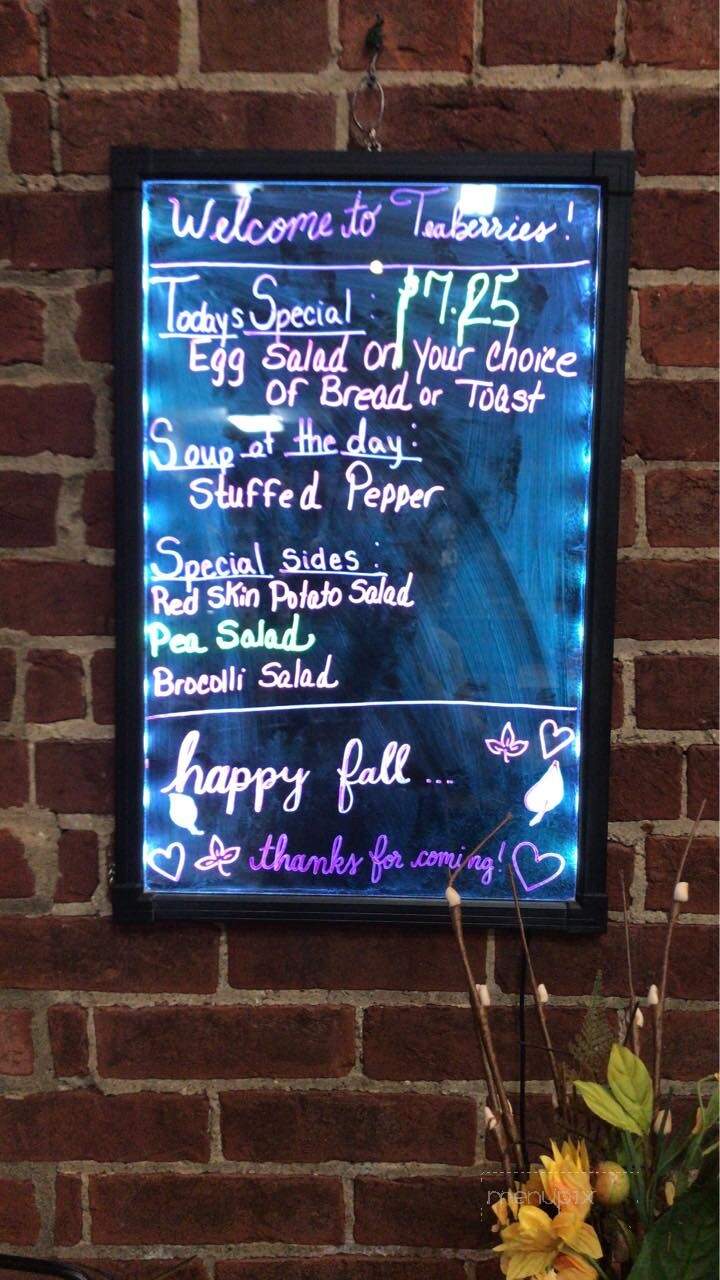 Welcome to Teaberries!
Todays Special : $7.25
Egg Salad on your choice
of Bread or Toast
Soup of the day:
Stuffed Pepper
Special Sides :
Red Skin Potato Salad
Pea Salad
Brocolli Salad
happy fall ...
thanks for coming!
menupix